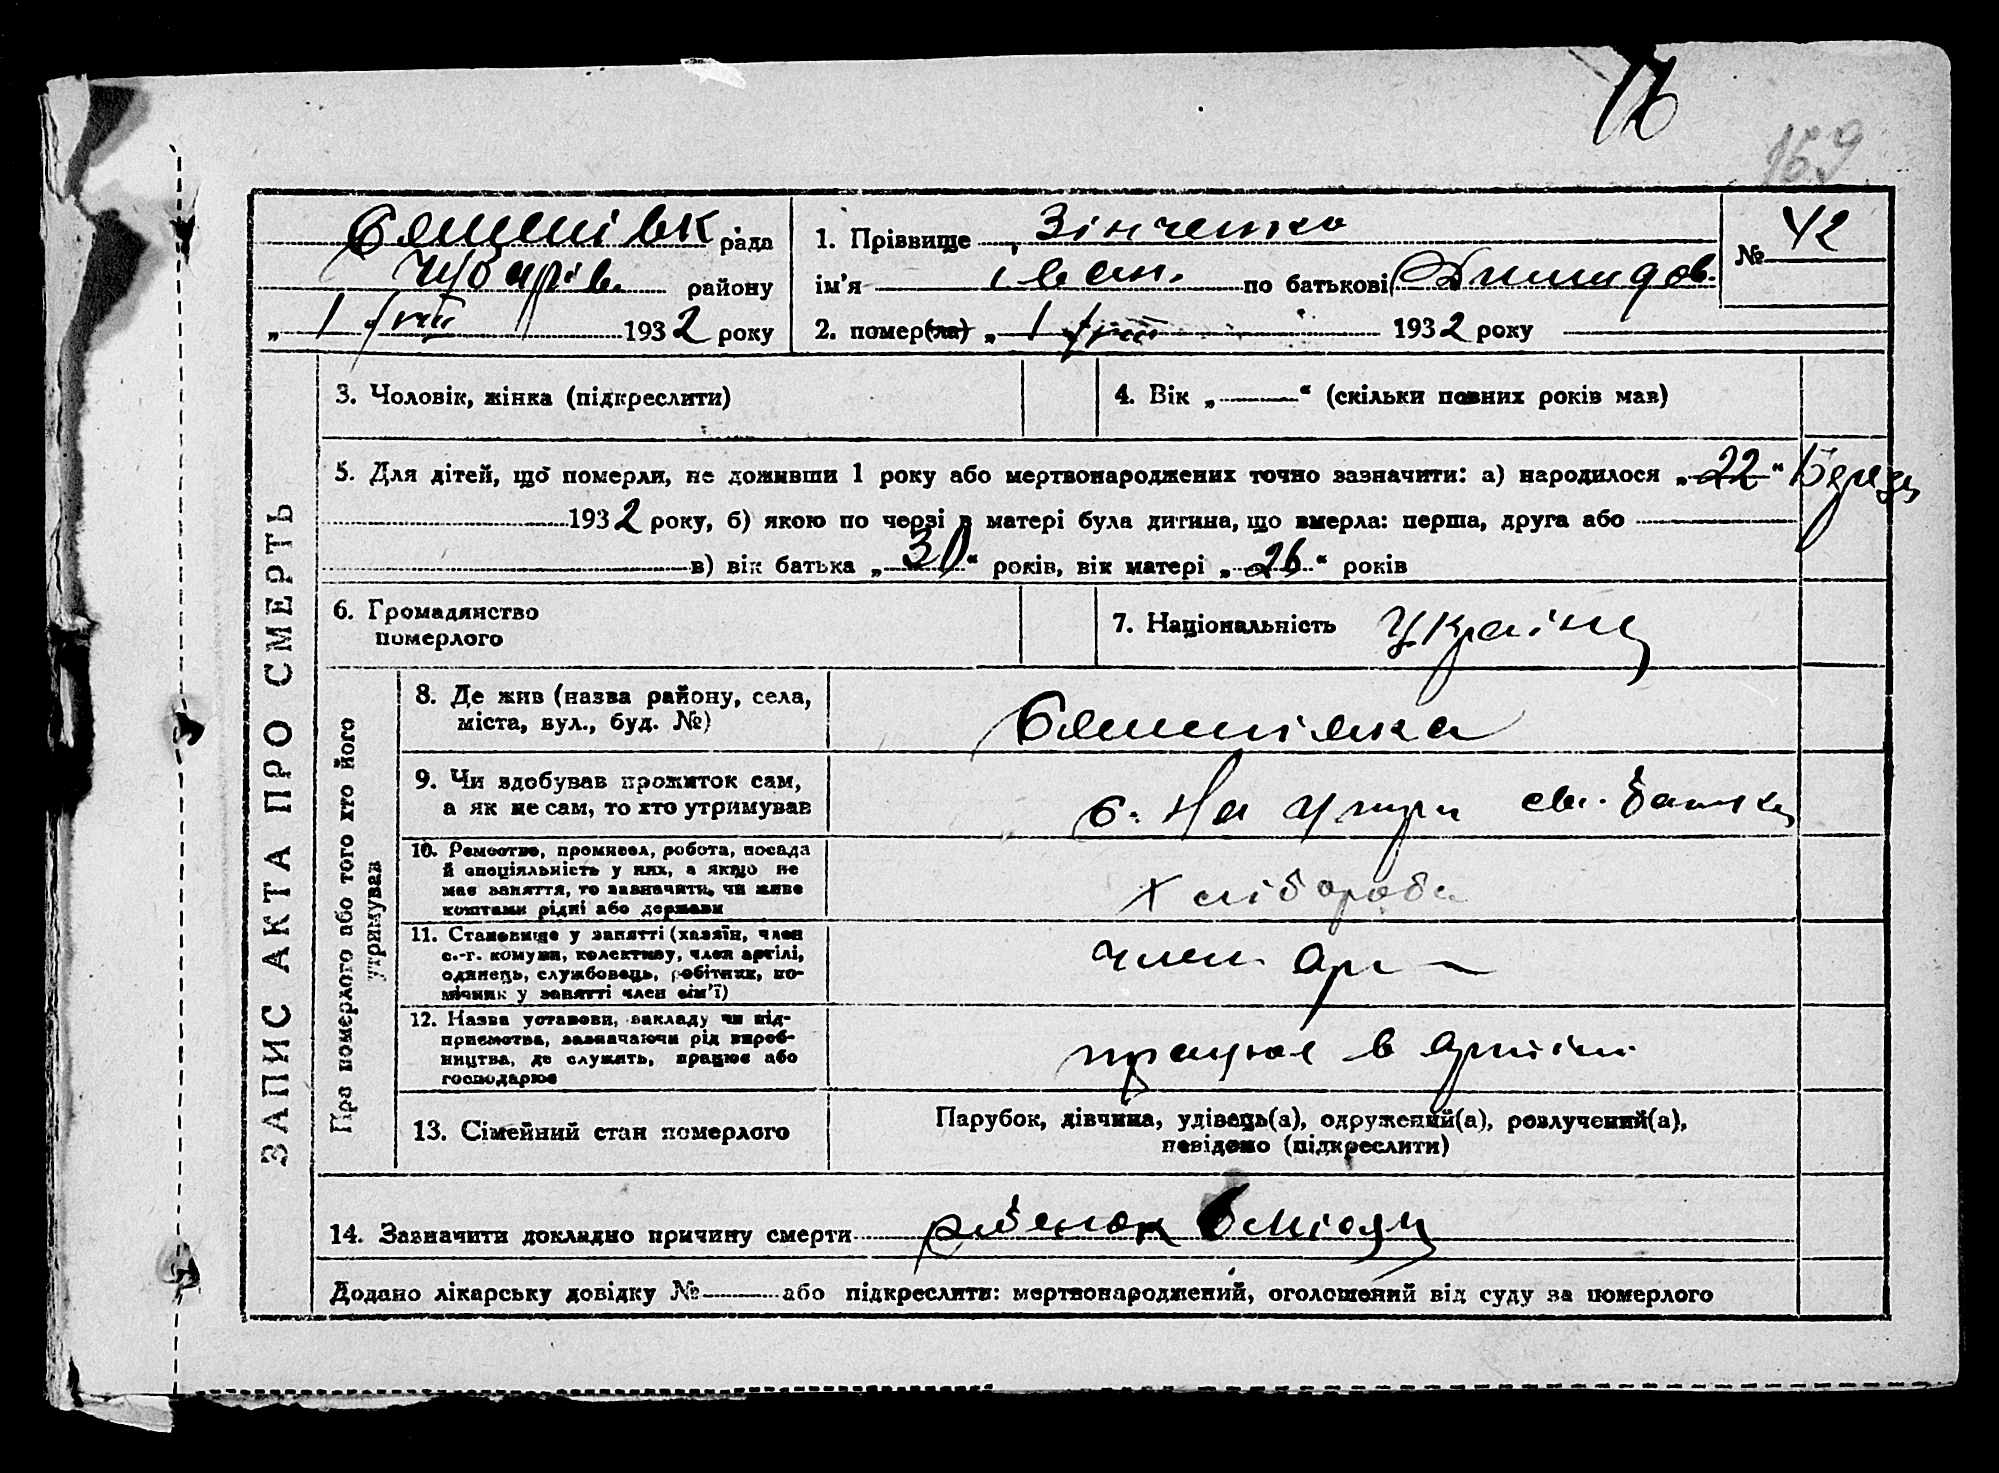 159
рада
1. Прізвище Зінченко
№ 42
Чубарів. району
ім'я Іван. по батькові
„ 1 1932 року
2. помер(ла) „ 1 1932 року
ЗАПИС АКТА ПРО СМЕРТЬ
3. Чоловік, жінка (підкреслити)
4. Вік „ “ (скільки повних років мав)
5. Для дітей, що померли, не доживши 1 року або мертвонароджених точно зазначити: а) народилося „ 22 “
1932 року, б) якою по черзі в матері була дитина, що вмерла: перша, друга або
в) вік батька „ 30 “ років, вік матері „ 26 “ років
6. Громадянство
померлого
7. Національність Україне
Про померлого або того хто його
утримував
8. Де жив (назва району, села,
міста, вул., буд. №)
9. Чи здобував прожиток сам,
а як не сам, то хто утримував
На утри
10. Ремество, промисел, робота, посада
й спеціяльність у них, а якщо не
має заняття, то зазначити, чи живе
коштами рідні або держави
Хлібороб
11. Становище у занятті (хазяїн, член
с.-г. комуни, колективу, член артілі,
одинець, службовець, робітник, по-
мічник у занятті член сім'ї)
член Арт
12. Назва установи, закладу чи під-
приємства, зазначаючи рід вироб-
ництва, де служить, працює або
господарює
працює в Артілі
13. Сімейний стан померлого
Парубок, дівчина, удівець(а), одружений(а), розлучений(а),
невідомо (підкреслити)
14. Зазначити докладно причину смерти
Додано лікарську довідку № або підкреслити: мертвонароджений, оголошений від суду за померлого